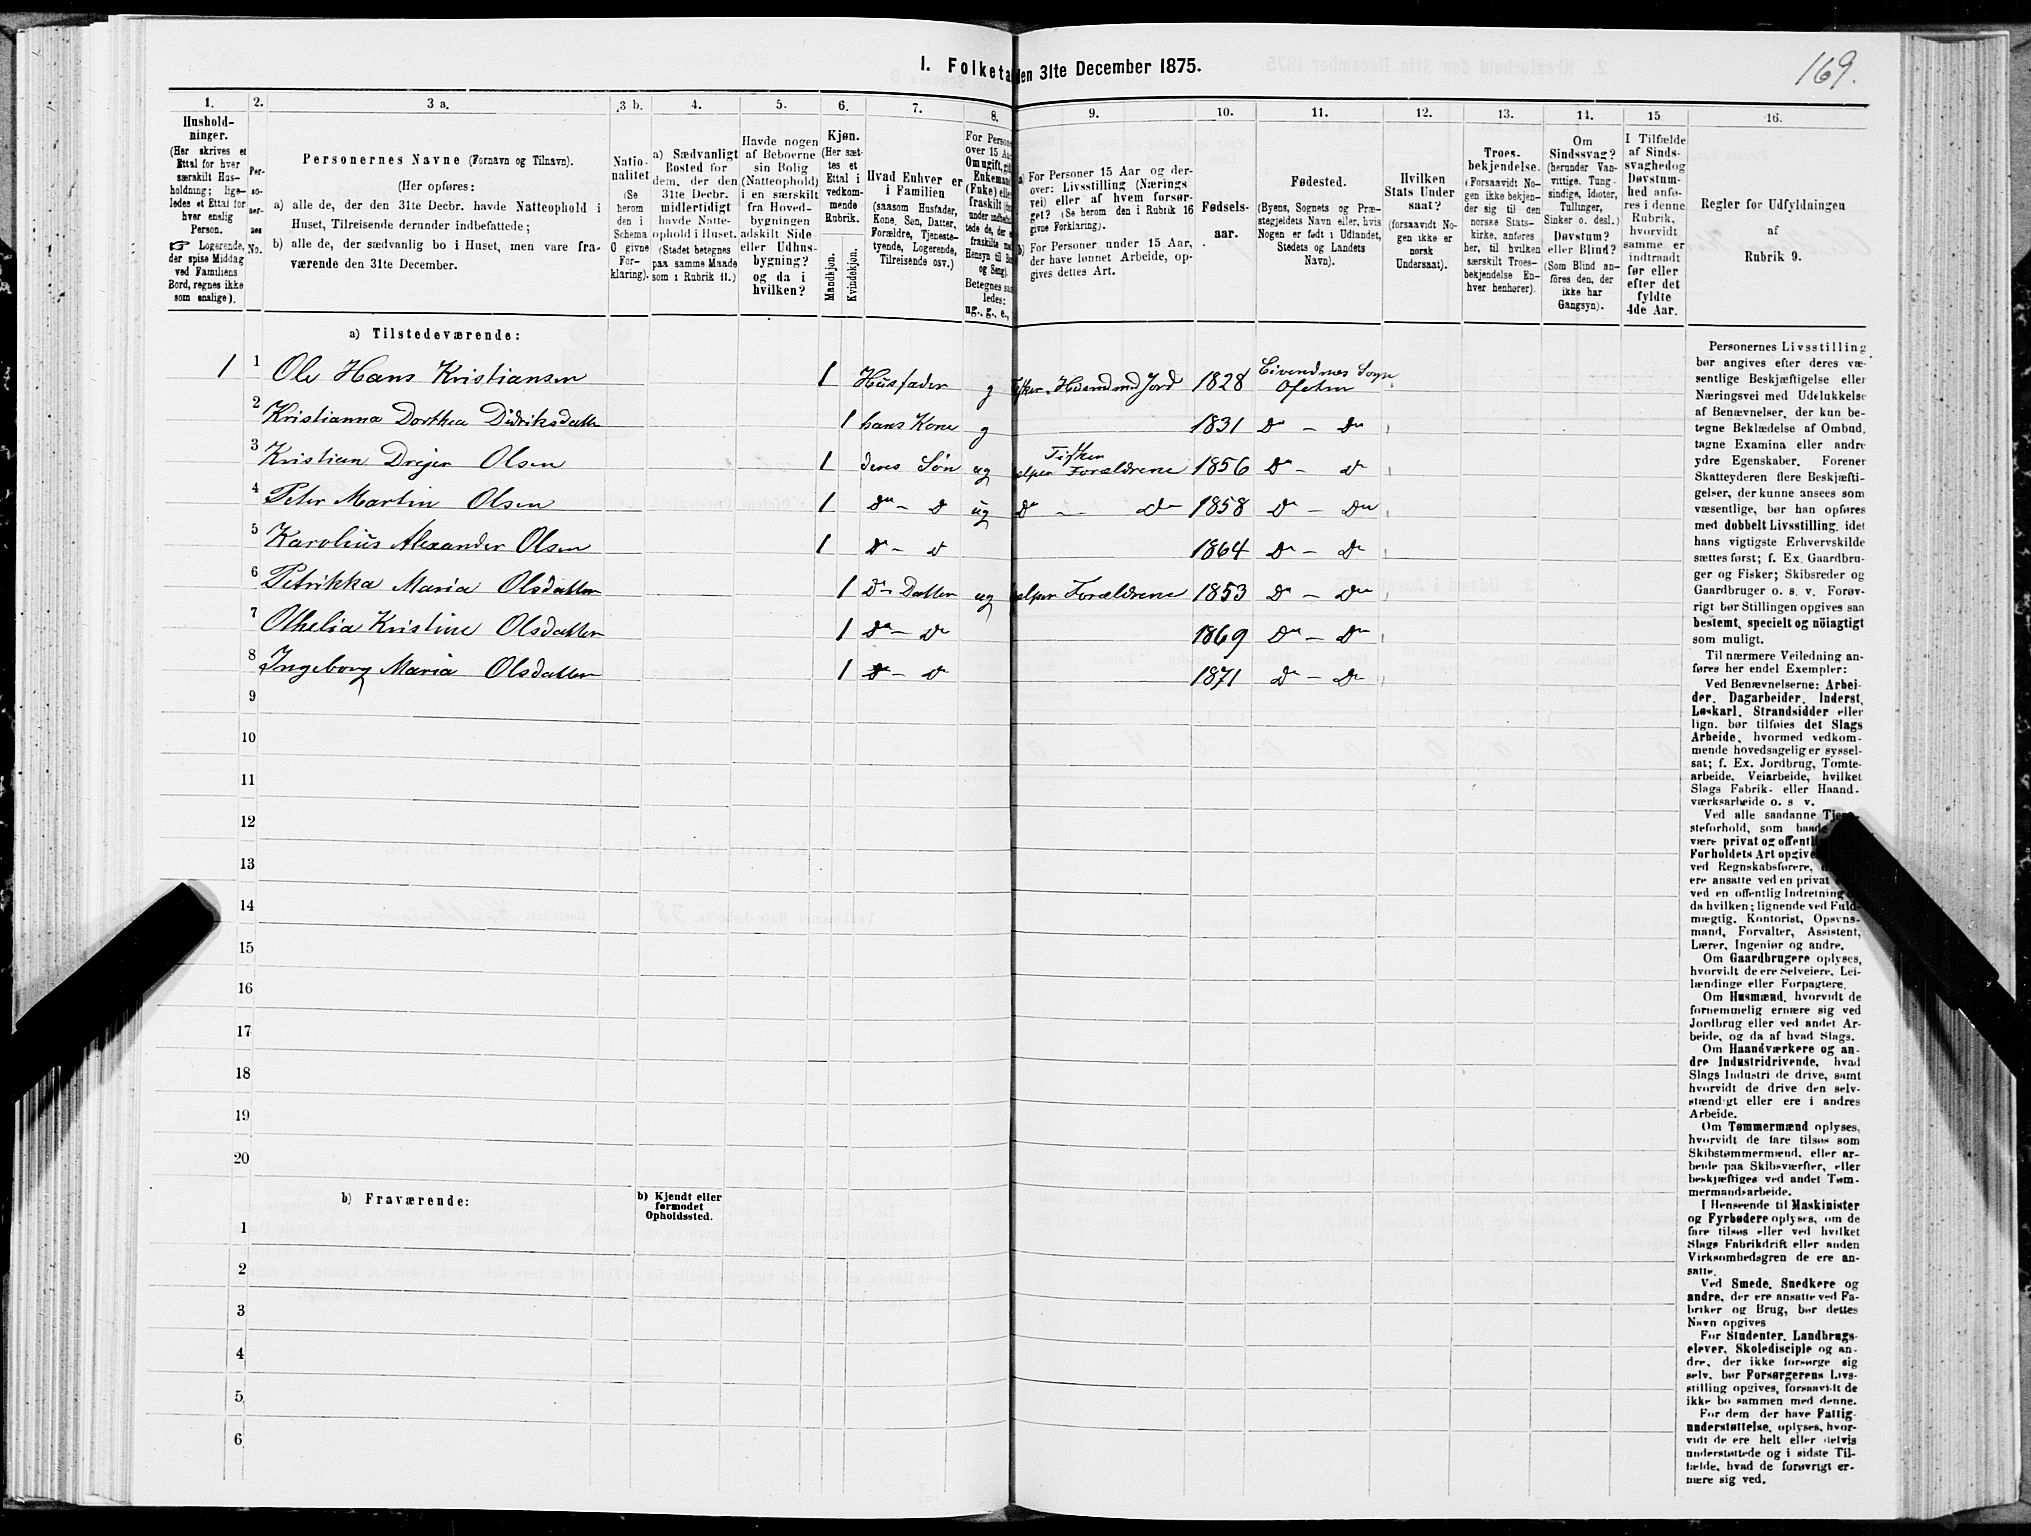 I. Folketa
den 31te December 1875.
169.
1.
2.
3 a.
3 b.
4.
5.
6.
7.
8.
9.
10.
11.
12.
13.
14.
15.
16.
Hushold-
ninger.
(Her skrives et
Ettal for hver
særskilt Hus-
holdning; lige-
ledes et Ettal for
hver enslig
Person.
☞ Logerende,
der spise Middag
ved Familiens
Bord, regnes ikke
som enslige).
Per-
so-
ner-
nes
No.
Personernes Navne (Fornavn og Tilnavn).
(Her opføres:
a) alle de, der den 31te Decbr. havde Natteophold i
Huset, Tilreisende derunder indbefattede;
b) alle de, der sædvanlig bo i Huset, men vare fra-
værende den 31te December.
Natio-
nalitet
(Se
herom
den i
Schema
O givne
For-
klaring).
a) Sædvanligt
Bosted for
dem, der den
31te Decbr.
midlertidigt
havde Natte-
ophold i Huset.
(Stedet betegnes
paa samme Maade
som i Rubrik 11.)
Havde nogen
af Beboerne
sin Bolig
(Natteophold)
i en særskilt
fra Hoved-
bygningen
adskilt Side
eller Udhus-
bygning?
og da i
hvilken?
Kjøn.
(Her sæt-
tes et
Ettal i
vedkom-
mende
Rubrik.
Mandkjøn.
Kvindekjøn.
Hvad Enhver er
i Familien
(saasom Husfader,
Kone, Søn, Datter,
Forældre, Tjeneste-
tyende, Logerende,
Tilreisende osv.)
For Person
over 15 Aa
Om ugift, gi
Enkemand
(Enke) elle
fraskilt
under indbefat-
tede de, der e
fraskilte me
Hensyn til Bo
og Seng).
Betegnes saa
ledes:
ug., g., e.,
a) For Personer 15 Aar og der-
over: Livsstilling (Nærings
vei) eller af hvem forsør-
get? (Se herom den i Rubrik 16
givne Forklaring).
b) For Personer under 15 Aar,
der have lønnet Arbeide, op-
gives dettes Art.
Fødsels-
aar.
Fødested.
(Byens, Sognets og Præ-
stegjeldets Navn eller, hvis
Nogen er født i Udlandet,
Stedets og Landets
Navn).
Hvilken
Stats Under
saat?
(forsaavidt No-
gen ikke er
norsk
Undersaat).
Troes-
bekjendelse.
(Forsaavidt No-
gen ikke bekjen-
der sig til den
norske Stats-
kirke, anføres
her, til hvilken
særskilt Troes-
bekjendelse En-
hver henhører).
Om
Sindssvag?
(herunder Van-
vittige, Tung-
sindige, Idioter,
Tullinger,
Sinker o. desl.)
Døvstum?
eller Blind?
(Som Blind an-
føres den, der
ikke har
Gangsyn).
I Tilfælde
af Sinds-
svaghed og
Døvstum-
hed anfø-
res i denne
Rubrik,
hvorvidt
samme er
indtraadt
før eller
efter det
fyldte
4de Aar.
Regler for Udfyldningen
af
Rubrik 9.
a) Tilstedeværende:
1 1 Ole Hans Kristiansen 1 Husfader g Fisker. Husmd md Jord 1828 Eivendnes Sogn
Ofoten
2 Kristianna Dorthea Didriksdatter 1 hans Kone g 1831 Do — Do
3 Kristian Drejer Olsen 1 deres Søn ug hjelper Forældrene 1856 Do — do
4 Peter Martin Olsen 1 do — do ug Do — Do 1858 Do — Do
5 Karolius Alexander Olsen 1 do — do 1864 Do — Do
6 Petrikka Maria Olsdatter 1 Do Datter ug hjelper Forældrene 1853 Do — Do
7 Othelia Kristine Olsdatter 1 Do — Do 1869 Do — Do
8 Ingeborg Maria Olsdatter 1 do — do 1871 Do — Do
9
10
11
12
13
14
15
16
17
18
19
20
b) Fraværende:
b) Kjendt eller
formodet
Opholdssted.
1
2
3
4
5
6
Personernes Livsstilling
bør angives efter deres væ-
sentlige Beskjæftigelse eller
Næringsvei med Udelukkelse
af Benævnelser, der kun be-
tegne Beklædelse af Ombud,
tagne Examina eller andre
ydre Egenskaber. Forener
Skatteyderen flere Beskjæfti-
gelser, der kunne ansees som
væsentlige, bør han opføres
med dobbelt Livsstilling, idet
hans vigtigste Erhvervskilde
sættes først; f. Ex. Gaardbru-
ger og Fisker; Skibsreder og
Gaardbruger o. s. v. Forøv-
rigt bør Stillingen opgives saa
bestemt, specielt og nöiagtigt
som muligt.
Til nærmere Veiledning an-
føres her endel Exempler:
Ved Benævnelserne: Arbei-
der, Dagarbeider, Inderst,
Løskarl, Strandsidder eller
lign. bør tilføies det Slags
Arbeide, hvormed vedkom-
mende hovedsagelig er syssel-
sat; f. Ex. Jordbrug, Tomte-
arbeide, Veiarbeide, hvilket
Slags Fabrik- eller Haand-
værksarbeide o. s v.
Ved alle saadanne Tjene-
steforhold, som baade
være privat og offentli
Forholdets Art opgive
ved Regnskabsførere,
ere ansatte ved en privat
ved en offentlig Indretning
da hvilken; lignende ved Fuld-
mægtig, Kontorist, Opsyns-
mand, Forvalter, Assistent,
Lærer, Ingeniør og andre.
Om Gaardbrugere oplyses,
hvorvidt de ere Selveiere, Lei-
lændinge eller Forpagtere.
Om Husmænd, hvorvidt de
fornemmelig ernære sig ved
Jordbrug eller ved andet Ar-
beide, og da af hvad Slags.
Om Haandværkere og an-
dre Industridrivende, hvad
Slags Industri de drive, samt
hvorvidt de drive den selv-
stændigt eller ere i andres
Arbeide.
Om Tømmermænd oplyses,
hvorvidt de fare tilsøs som
Skibstømmermænd, eller ar-
beide paa Skibsværfter, eller
beskjæftiges ved andet Tøm-
mermandsarbeide.
I Henseende til Maskinister
og Fyrbødere oplyses, om de
fare tilsøs eller ved hvilket
Slags Fabrikdrift eller anden
Virksomhedsgren de ere an-
satte.
Ved Smede, Snedkere og
andre, der ere ansatte ved Fa-
briker og Brug, bør dettes
Navn opgives
For Studenter, Landbrugs-
elever, Skoledisciple og an-
dre, der ikke forsørge sig
selv, bør Forsørgerens Livs-
stilling opgives, forsaavidt de
ikke bo sammen med denne.
For dem der have Fattig-
understøttelse, oplyses, hvor-
vidt de ere helt eller delvis
understøttede og i sidste Til-
fælde, hvad de forøvrigt er-
nære sig ved.